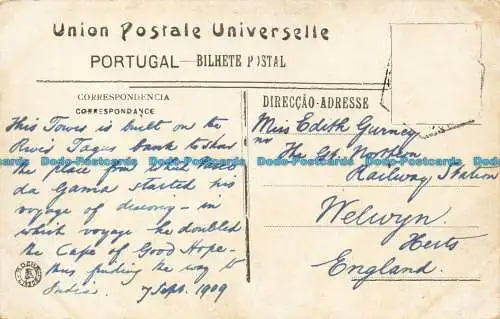 Union Postale Universelle
PORTUGAL—BILHETE POSTAL
CORRESPONDENCIA
CORRESPONDANCE
This Tower is built on the
River Tagus bank to show
the place from which Vasco
da Gama started his
voyage of discovery - in
which voyage he doubled
the Cape of Good Hope -
thus finding the way to
India. 7 Sept. 1909
DIRECÇÃO-ADRESSE
Miss Edith Gurney
The Gt. Northern
Railway Station
Welwyn.
Herts
England.
Dodo-Postcards Dodo-Postcards Dodo-Postcards Dodo-Postcards Dodo-Postcards Dodo-Postcards